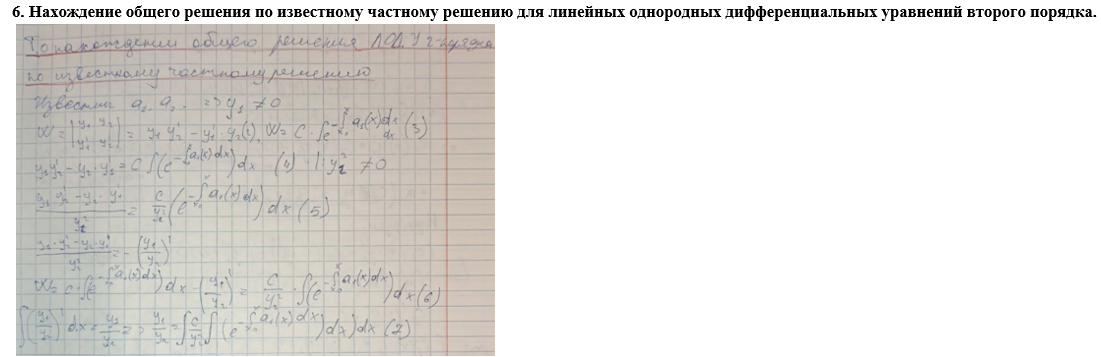 6. Нахождение общего решения по известному частному решению для линейных однородных дифференциальных уравнений второго порядка.
нахождении общего решения ЛОДУ 2-порядка
по известному частному решению
Известны a₁, a₂. => y₁ ≠ 0
W = |y₁ y₂; y₁' y₂'| = y₁ y₂' − y₁' · y₂(2), W = C · ∫e^(−∫_{x₀}^{x} a₁(x)dx) dx (3)
y₁y₂' − y₂ · y₁' = C ∫(e^(−∫a₁(x)dx))dx (4) | : y₂² ≠ 0
(y₁ · y₂' − y₂ · y₁')/y₂² = C/y₂² (e^(−∫_{x₀}^{x} a₁(x)dx) dx (5)
(y₁ · y₂' − y₂ · y₁')/y₂² = −(y₁/y₂)'
W = C · ∫(e^(−∫a₁(x)dx))dx −(y₁/y₂)' = C/y₂² · ∫(e^(−∫_{x₀}^{x} a₁(x)dx))dx (6)
∫(y₁/y₂)' dx = y₂/y₁ => y₁/y₂ = ∫C/y₂² ∫(e^(−∫_{x₀}^{x} a₁(x)dx)dx)dx (7)